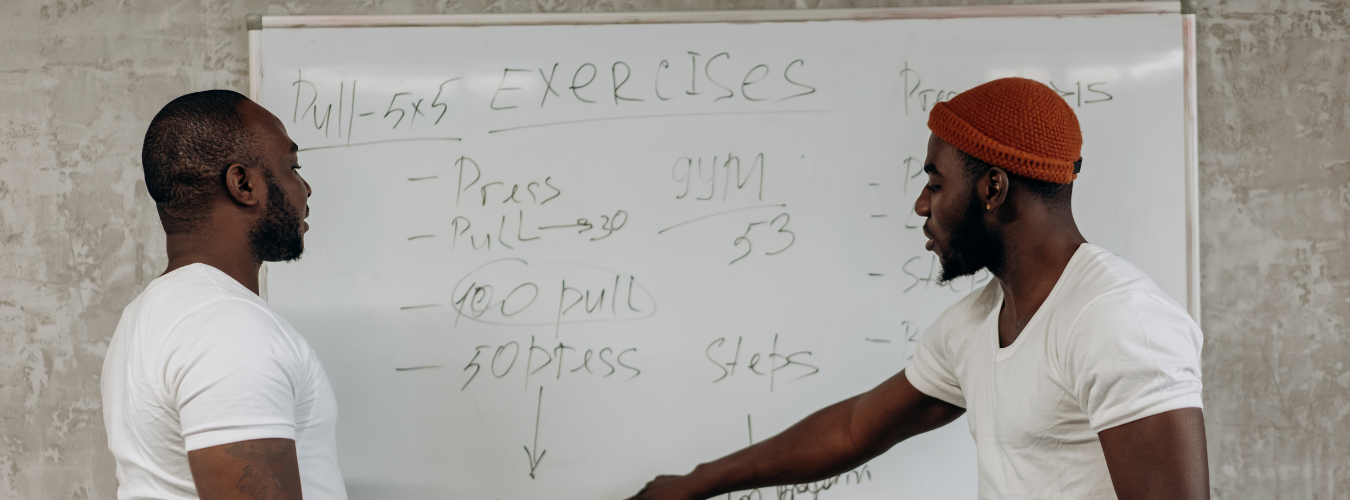 Pull-5x5 EXERCISES
- Press
- Pull→30
- 100 pull
- 50 press
gym
53
Steps
15
- Steps